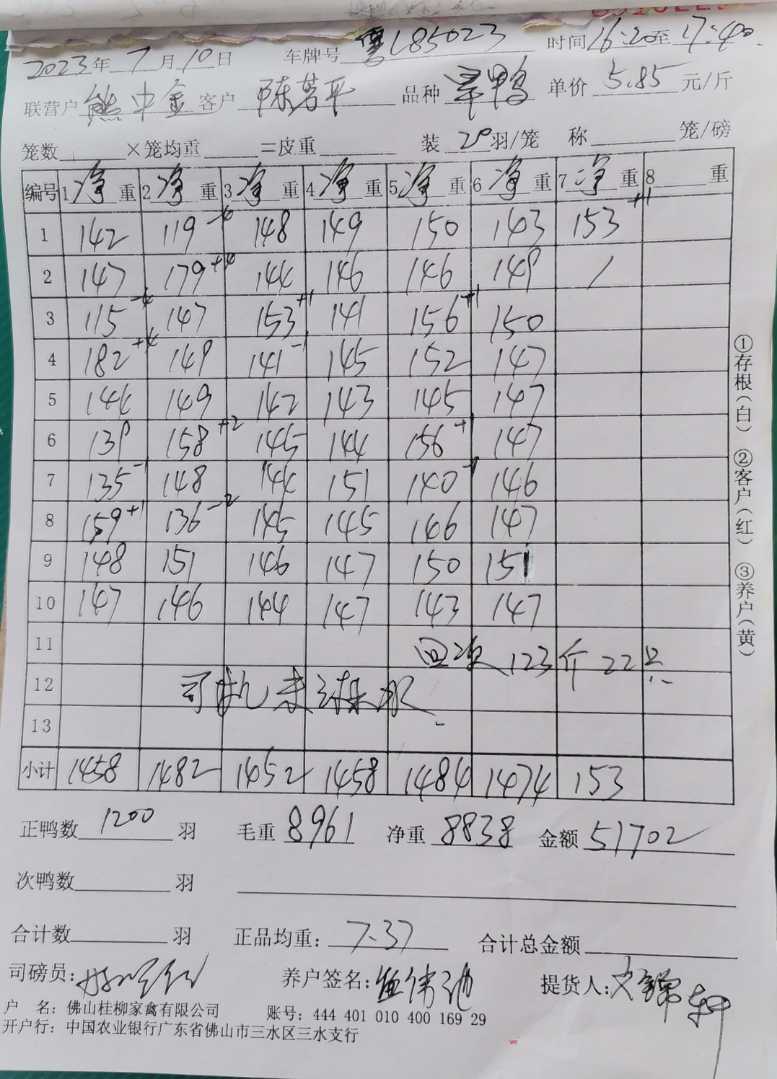 2023年 7 月 10 日 车牌号 粤L85023 时间 16:20至 17:40
联营户 熊中金 客户 陈茗平 品种 旱鸭 单价 5.85 元/斤
笼数 ×笼均重 =皮重 装 20 羽/笼 称 笼/磅
编号 1净重 2净重 3净重 4净重 5净重 6净重 7净重 8 重
1 142 119 148 149 150 143 153+1
2 147 179+4 144 146 146 149 /
3 115 147 153+1 141 156+1 150
4 182+4 149 141-1 145 152 147
5 144 149 142 143 145 147
6 139 158+2 145 144 156+1 147
7 135-1 148 144 151 140 146
8 159+1 136-2 145 145 146 147
9 148 151 146 147 150 151
10 147 146 144 147 143 147
11 四次 123斤 22只
12 司机未
13
小计 1458 1482 1452 1458 1484 1474 153
正鸭数 1200 羽 毛重 8961 净重 8838 金额 51702
次鸭数 羽
合计数 羽 正品均重: 7.37 合计总金额
司磅员: 养户签名: 提货人:
户 名: 佛山桂柳家禽有限公司 账号: 444 401 010 400 169 29
开户行: 中国农业银行广东省佛山市三水区三水支行
①存根(白) ②客户(红) ③养户(黄)